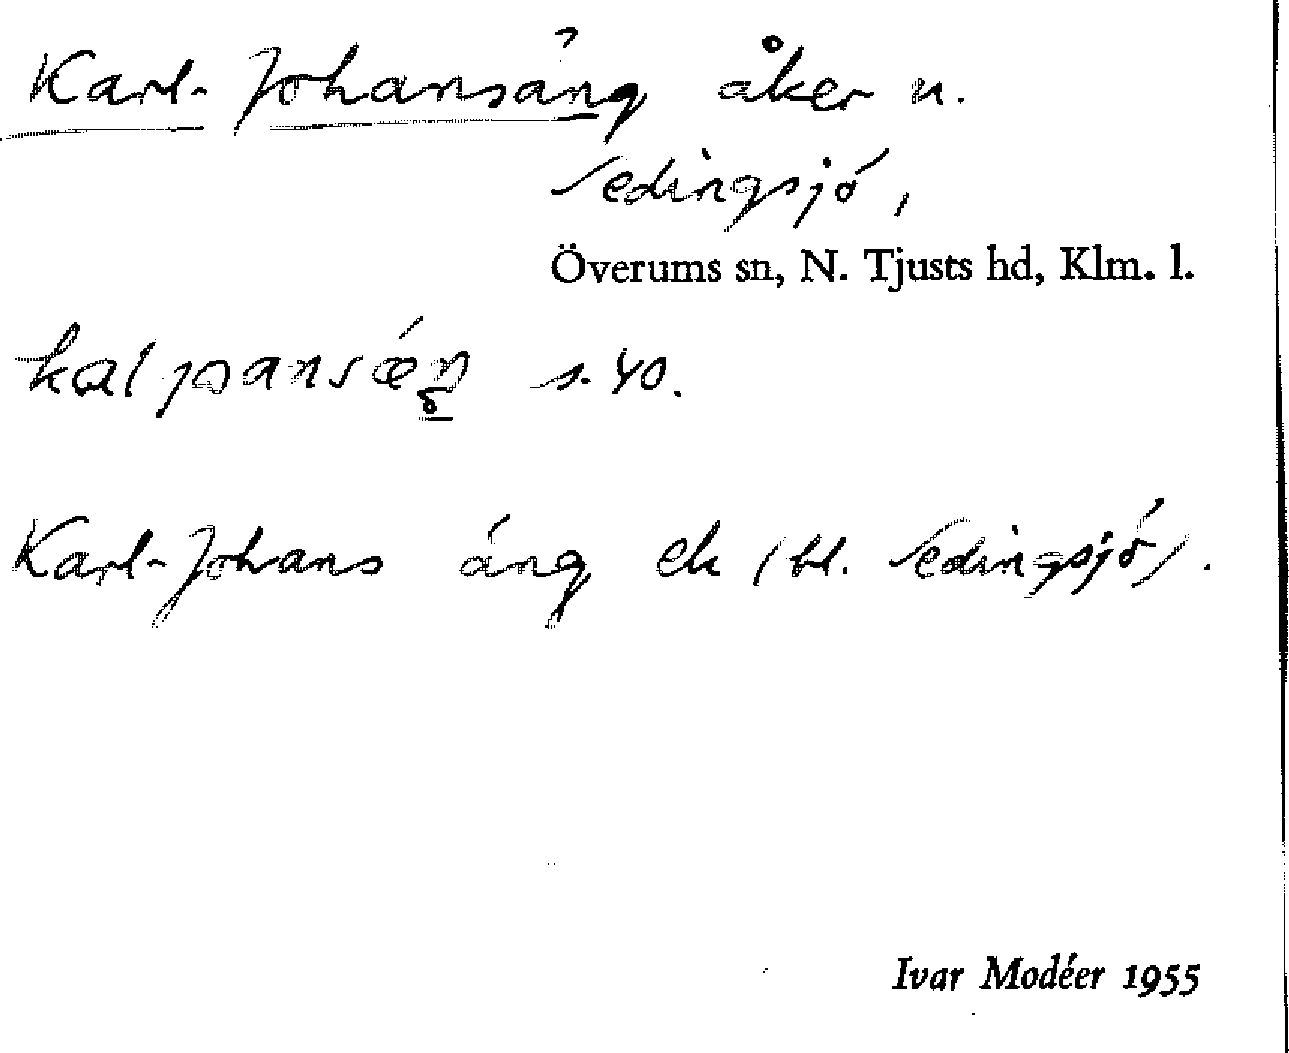 Karl-Johansäng åker u.
Sedingsjö,
Överums sn, N. Tjusts hd, Klm. l.
s. 40.
Karl-Johans äng ek (bl. Sedingsjö).
Ivar Modéer 1955